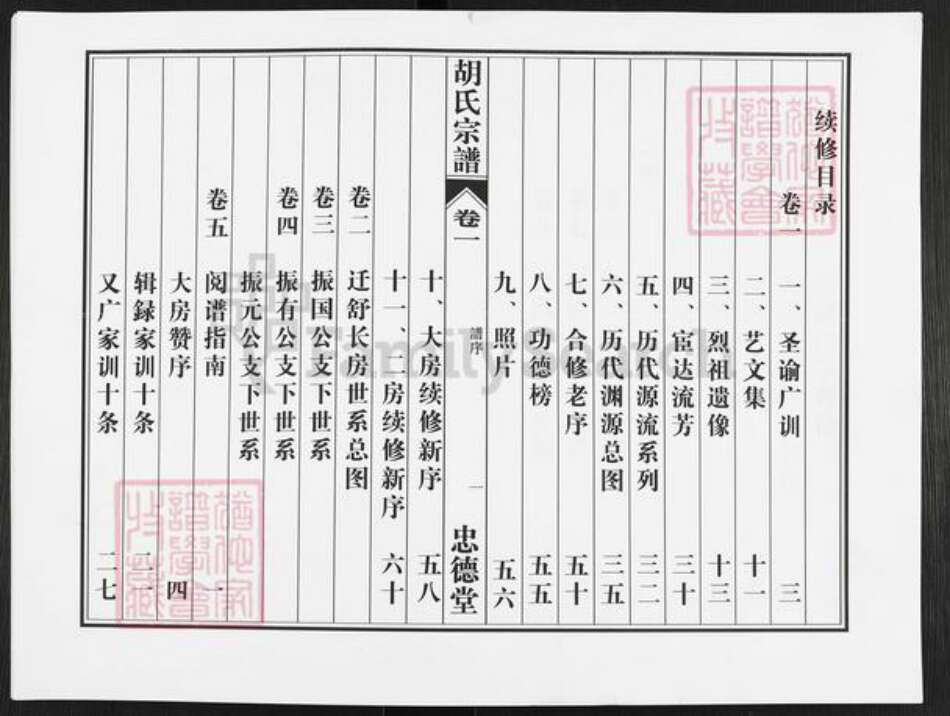 续修目录
卷一
一、圣谕广训 三
二、艺文集 十一
三、烈祖遗像 十三
四、宦达流芳 三十
五、历代源流系列 三二
六、历代渊源总图 三五
七、合修老序 五十
八、功德榜 五五
九、照片 五六
胡氏宗譜 卷一 譜序 一 忠德堂
十、大房续修新序 五八
十一、二房续修新序 六十
卷二 迁舒长房世系总图
卷三 振国公支下世系
卷四 振有公支下世系
振元公支下世系
卷五 阅谱指南 一
大房赞序 四
辑録家训十条
又广家训十条 二七
FamilySearch